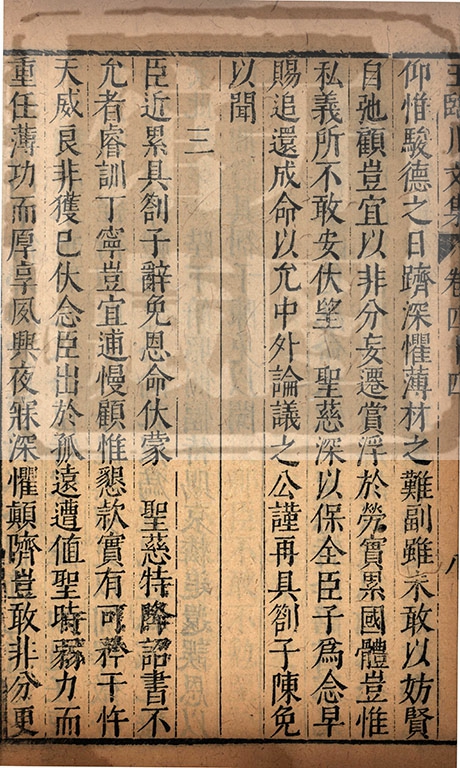 王臨川文集 卷四十四 八
仰惟駿德之日躋深懼薄材之難副雖未敢以妨賢
自弛顧豈宜以非分妄遷賞浮於勞實累國體豈惟
私義所不敢安伏望 聖慈深以保全臣子爲念早
賜追還成命以允中外論議之公謹再具劄子陳免
以聞
三
臣近累具劄子辭免恩命伏蒙 聖慈特降詔書不
允者睿訓丁寧豈宜逋慢顧惟懇款實有可矜干忤
天威良非獲已伏念臣出於孤遠遭值聖時竊力而
重任薄功而厚享夙興夜寐深懼顛隮豈敢非分更